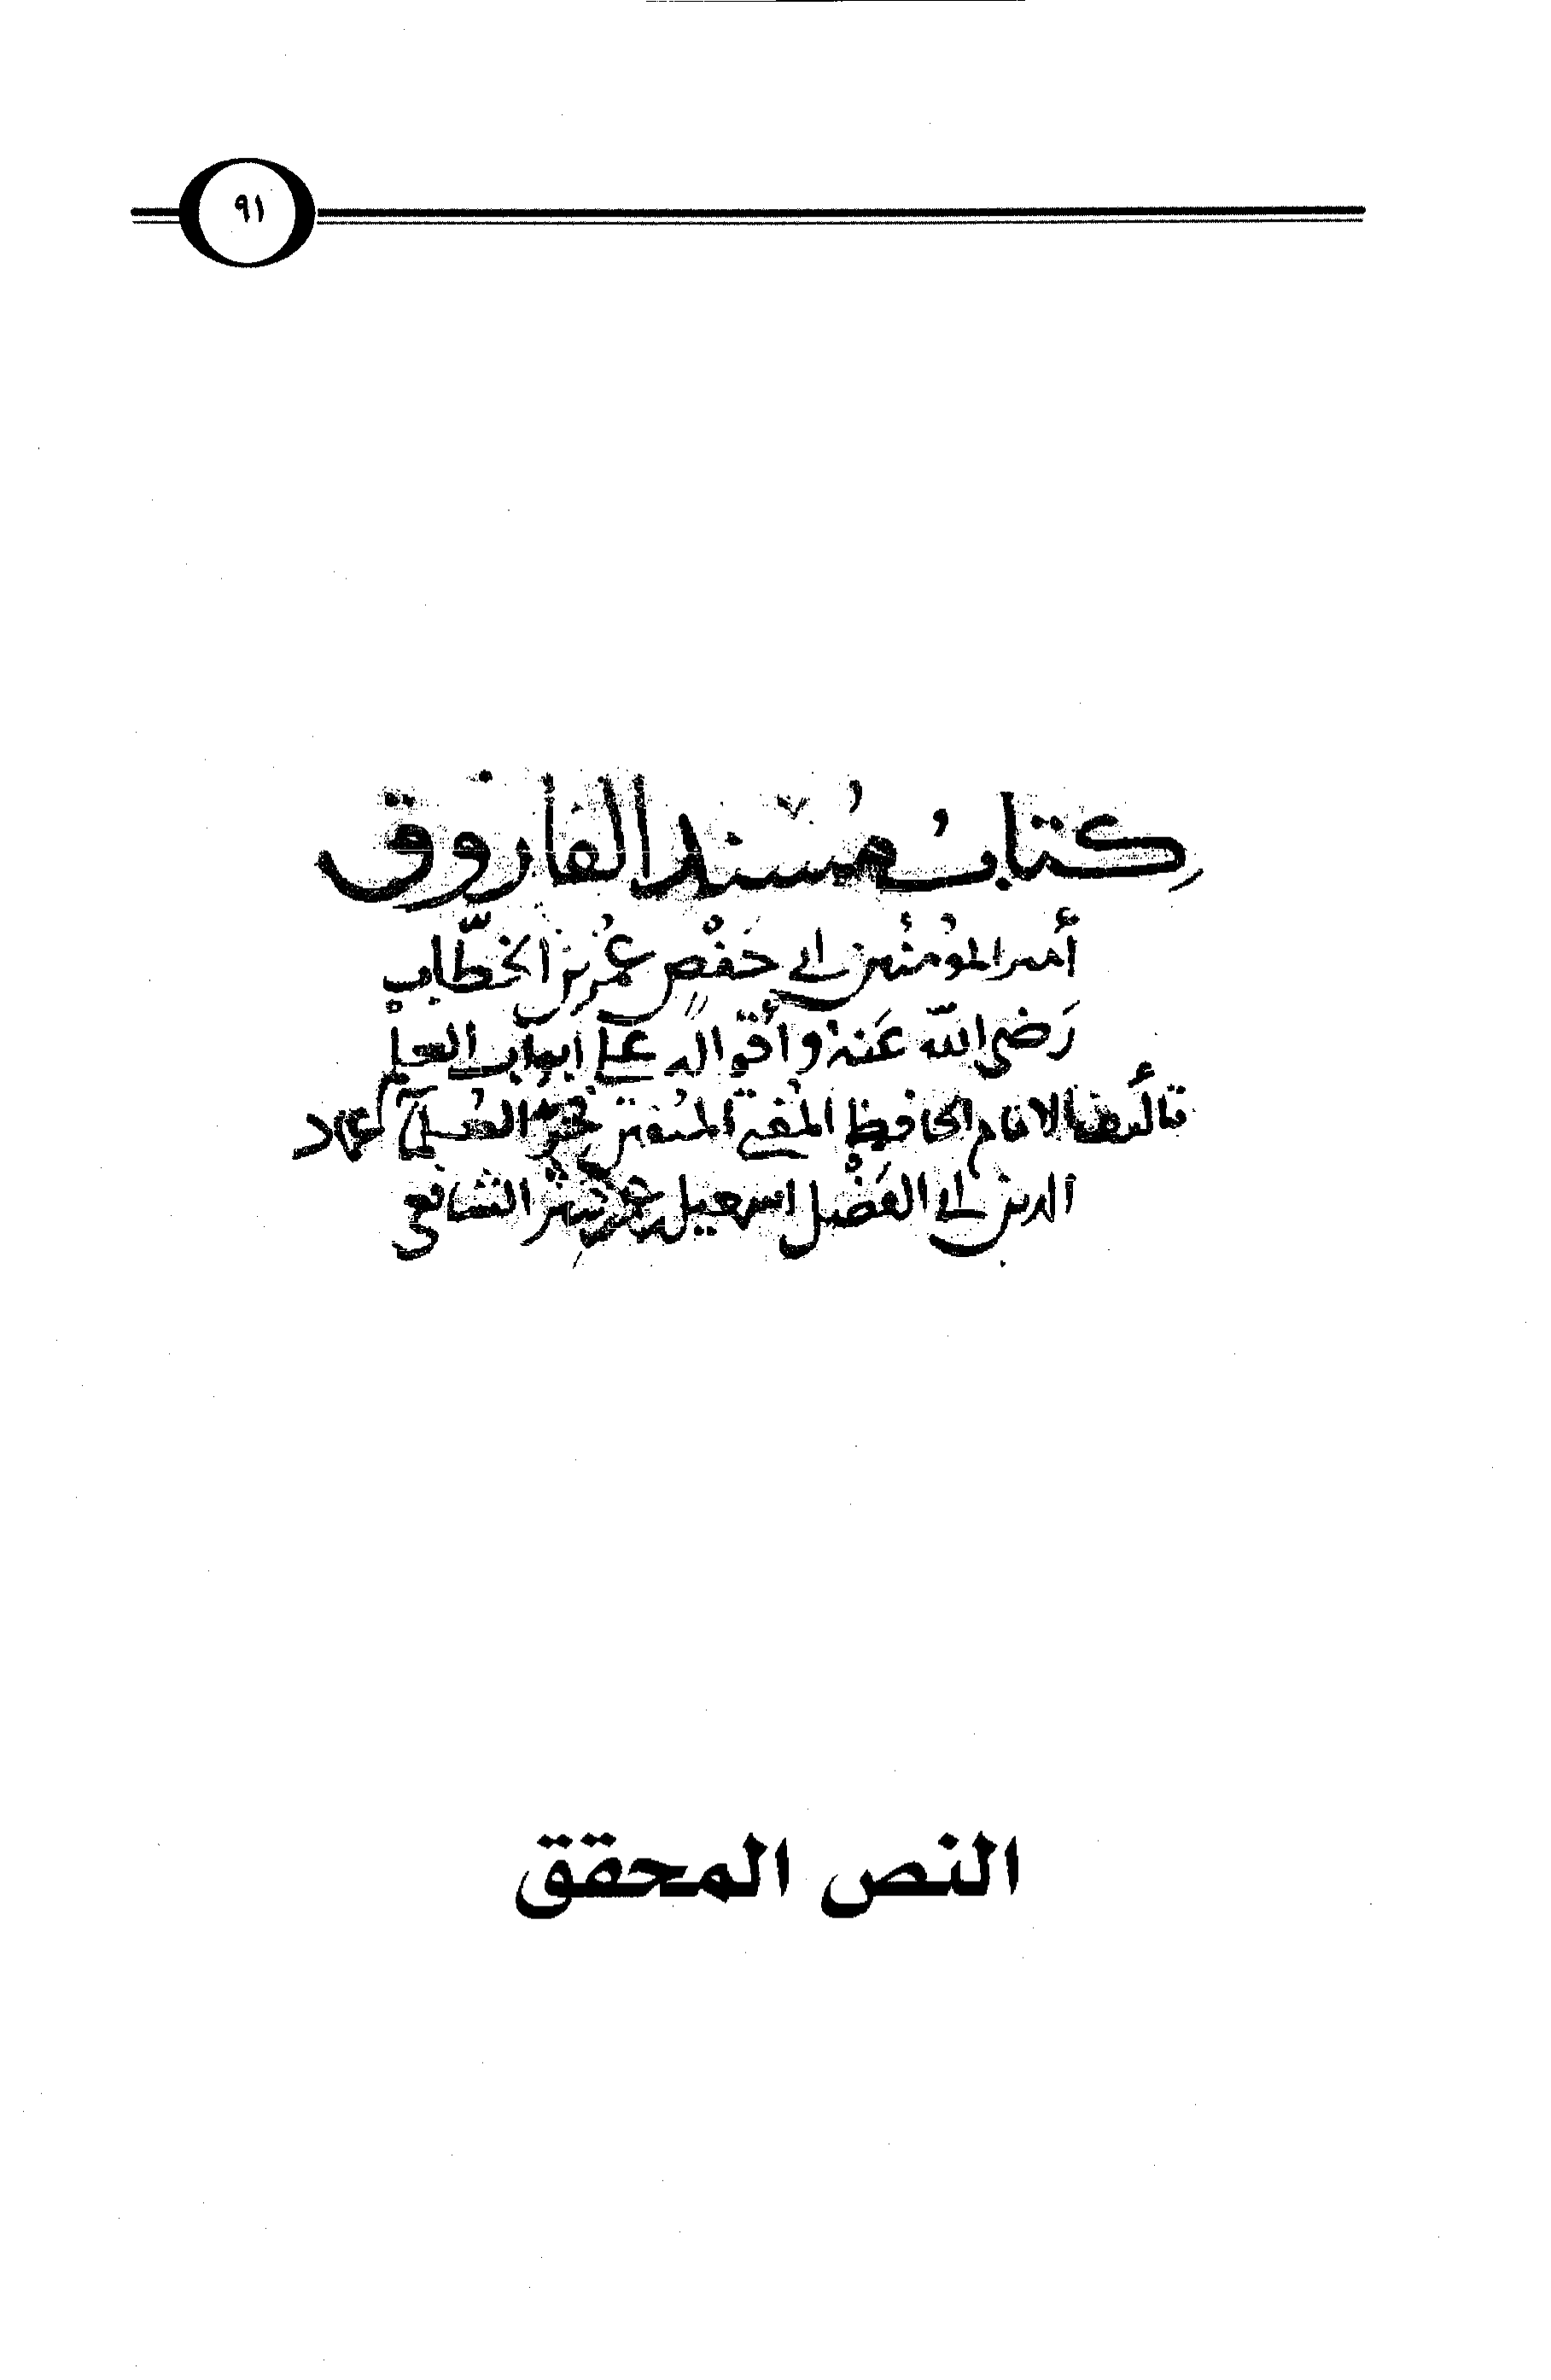 ٩١
كتابُ مُسند الفاروق
أمير المؤمنين أبي حَفْصٍ عُمر بن الخطّاب
رَضي الله عَنهُ وأقواله على أبواب العلم
تأليف الامام الحافظ المُفتي المُتقن فخر العُلماء عماد
الدين أبي الفَضْل اسمعيل بن عمر بن كثير الشافعي
النص المحقق